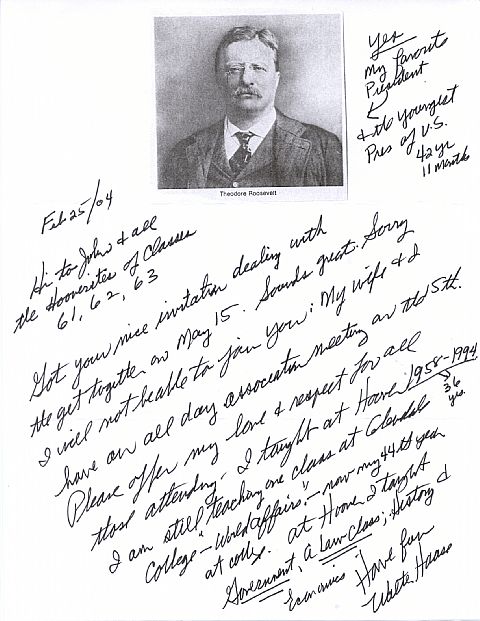 Yes
My favorite
President
& the youngest
Pres of U.S.
42 yr
11 months
Theodore Roosevelt
Feb 25/04
Hi to John & all
the Hooverites of Classes
61, 62, 63
Got your nice invitation dealing with
the get together on May 15. Sounds great. Sorry
I will not be able to join you; My wife & I
have an all day association meeting on the 15th.
Please offer my love & respect for all
those attending. I taught at Hoover 1958-1994
36
yrs.
I am still teaching one class at Glendale
College - "World Affairs." - now my 44th year
at college. at Hoover I taught
Government, a Law Class; History &
Economics
Have fun
Walter Haase